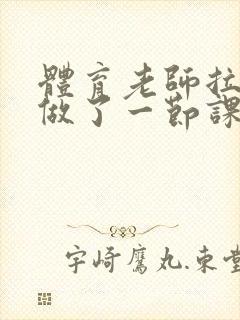 體育老師拉
做了一節課
宇崎鷹丸.東堂